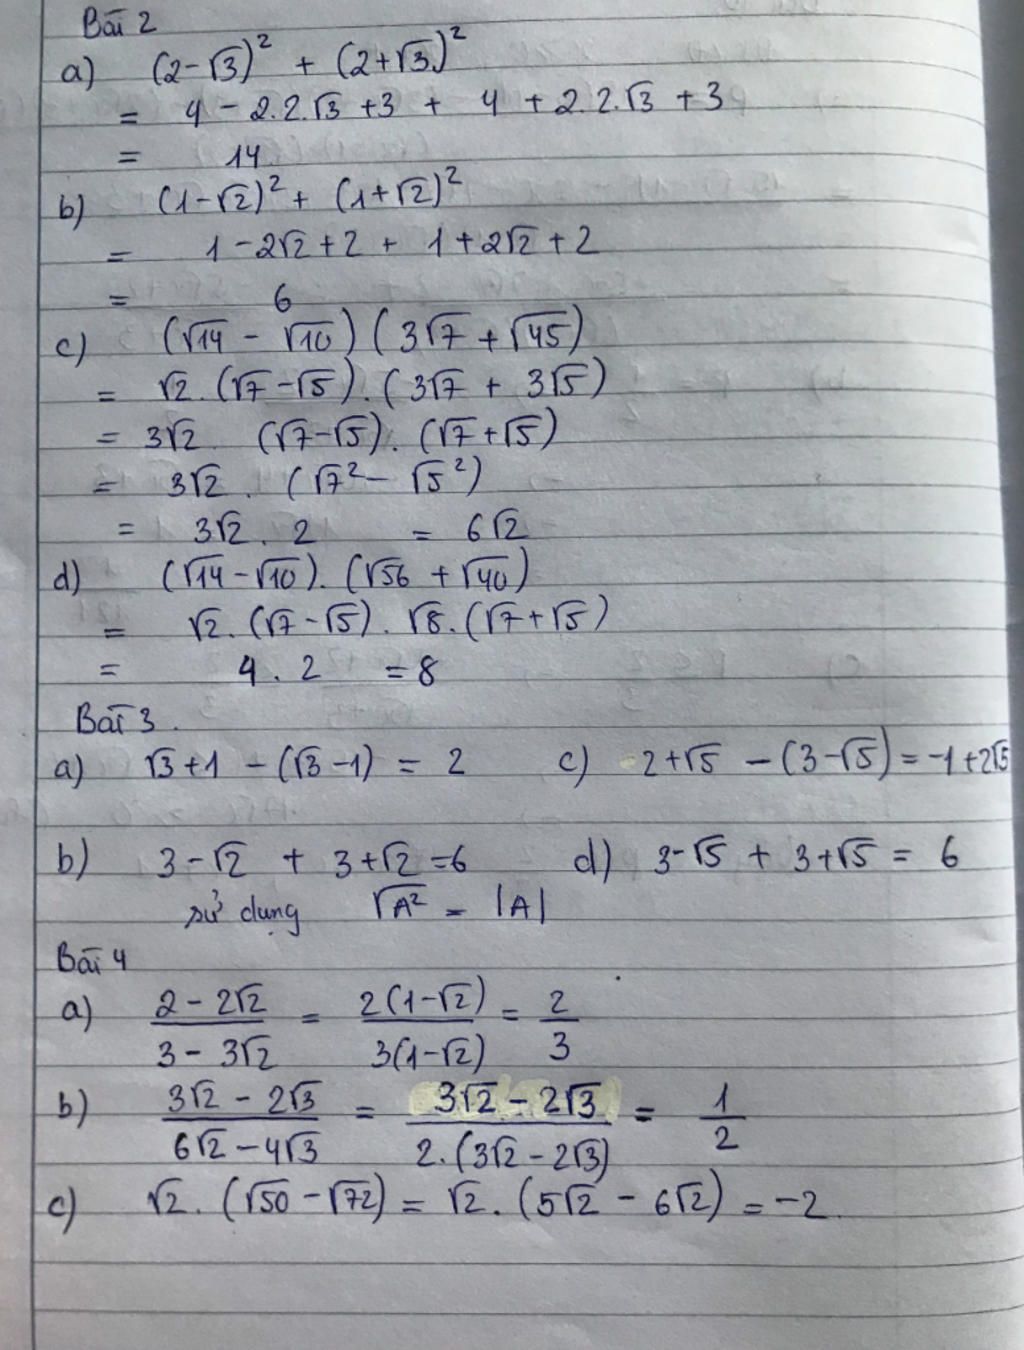 Bài 2
a) (2-√3)² + (2+√3)²
= 4 - 2.2.√3 +3 + 4 + 2.2.√3 +3
= 14
b) (1-√2)² + (1+√2)²
= 1 - 2√2 + 2 + 1 + 2√2 + 2
= 6
c) (√14 - √10) (3√7 + √45)
= √2.(√7-√5).(3√7 + 3√5)
= 3√2 (√7-√5).(√7+√5)
= 3√2 . (√7² - √5²)
= 3√2 . 2 = 6√2
d) (√14-√10).(√56 + √40)
= √2.(√7-√5).√8.(√7+√5)
= 4 . 2 = 8
Bài 3.
a) √3+1 - (√3-1) = 2 c) -2+√5 - (3-√5) = -1+2√5
b) 3-√2 + 3+√2 = 6 d) 3-√5 + 3+√5 = 6
sử dụng √A² = |A|
Bài 4
a) (2 - 2√2)/(3 - 3√2) = 2(1-√2)/3(1-√2) = 2/3
b) (3√2 - 2√3)/(6√2 - 4√3) = (3√2 - 2√3)/2.(3√2 - 2√3) = 1/2
c) √2.(√50 - √72) = √2.(5√2 - 6√2) = -2.